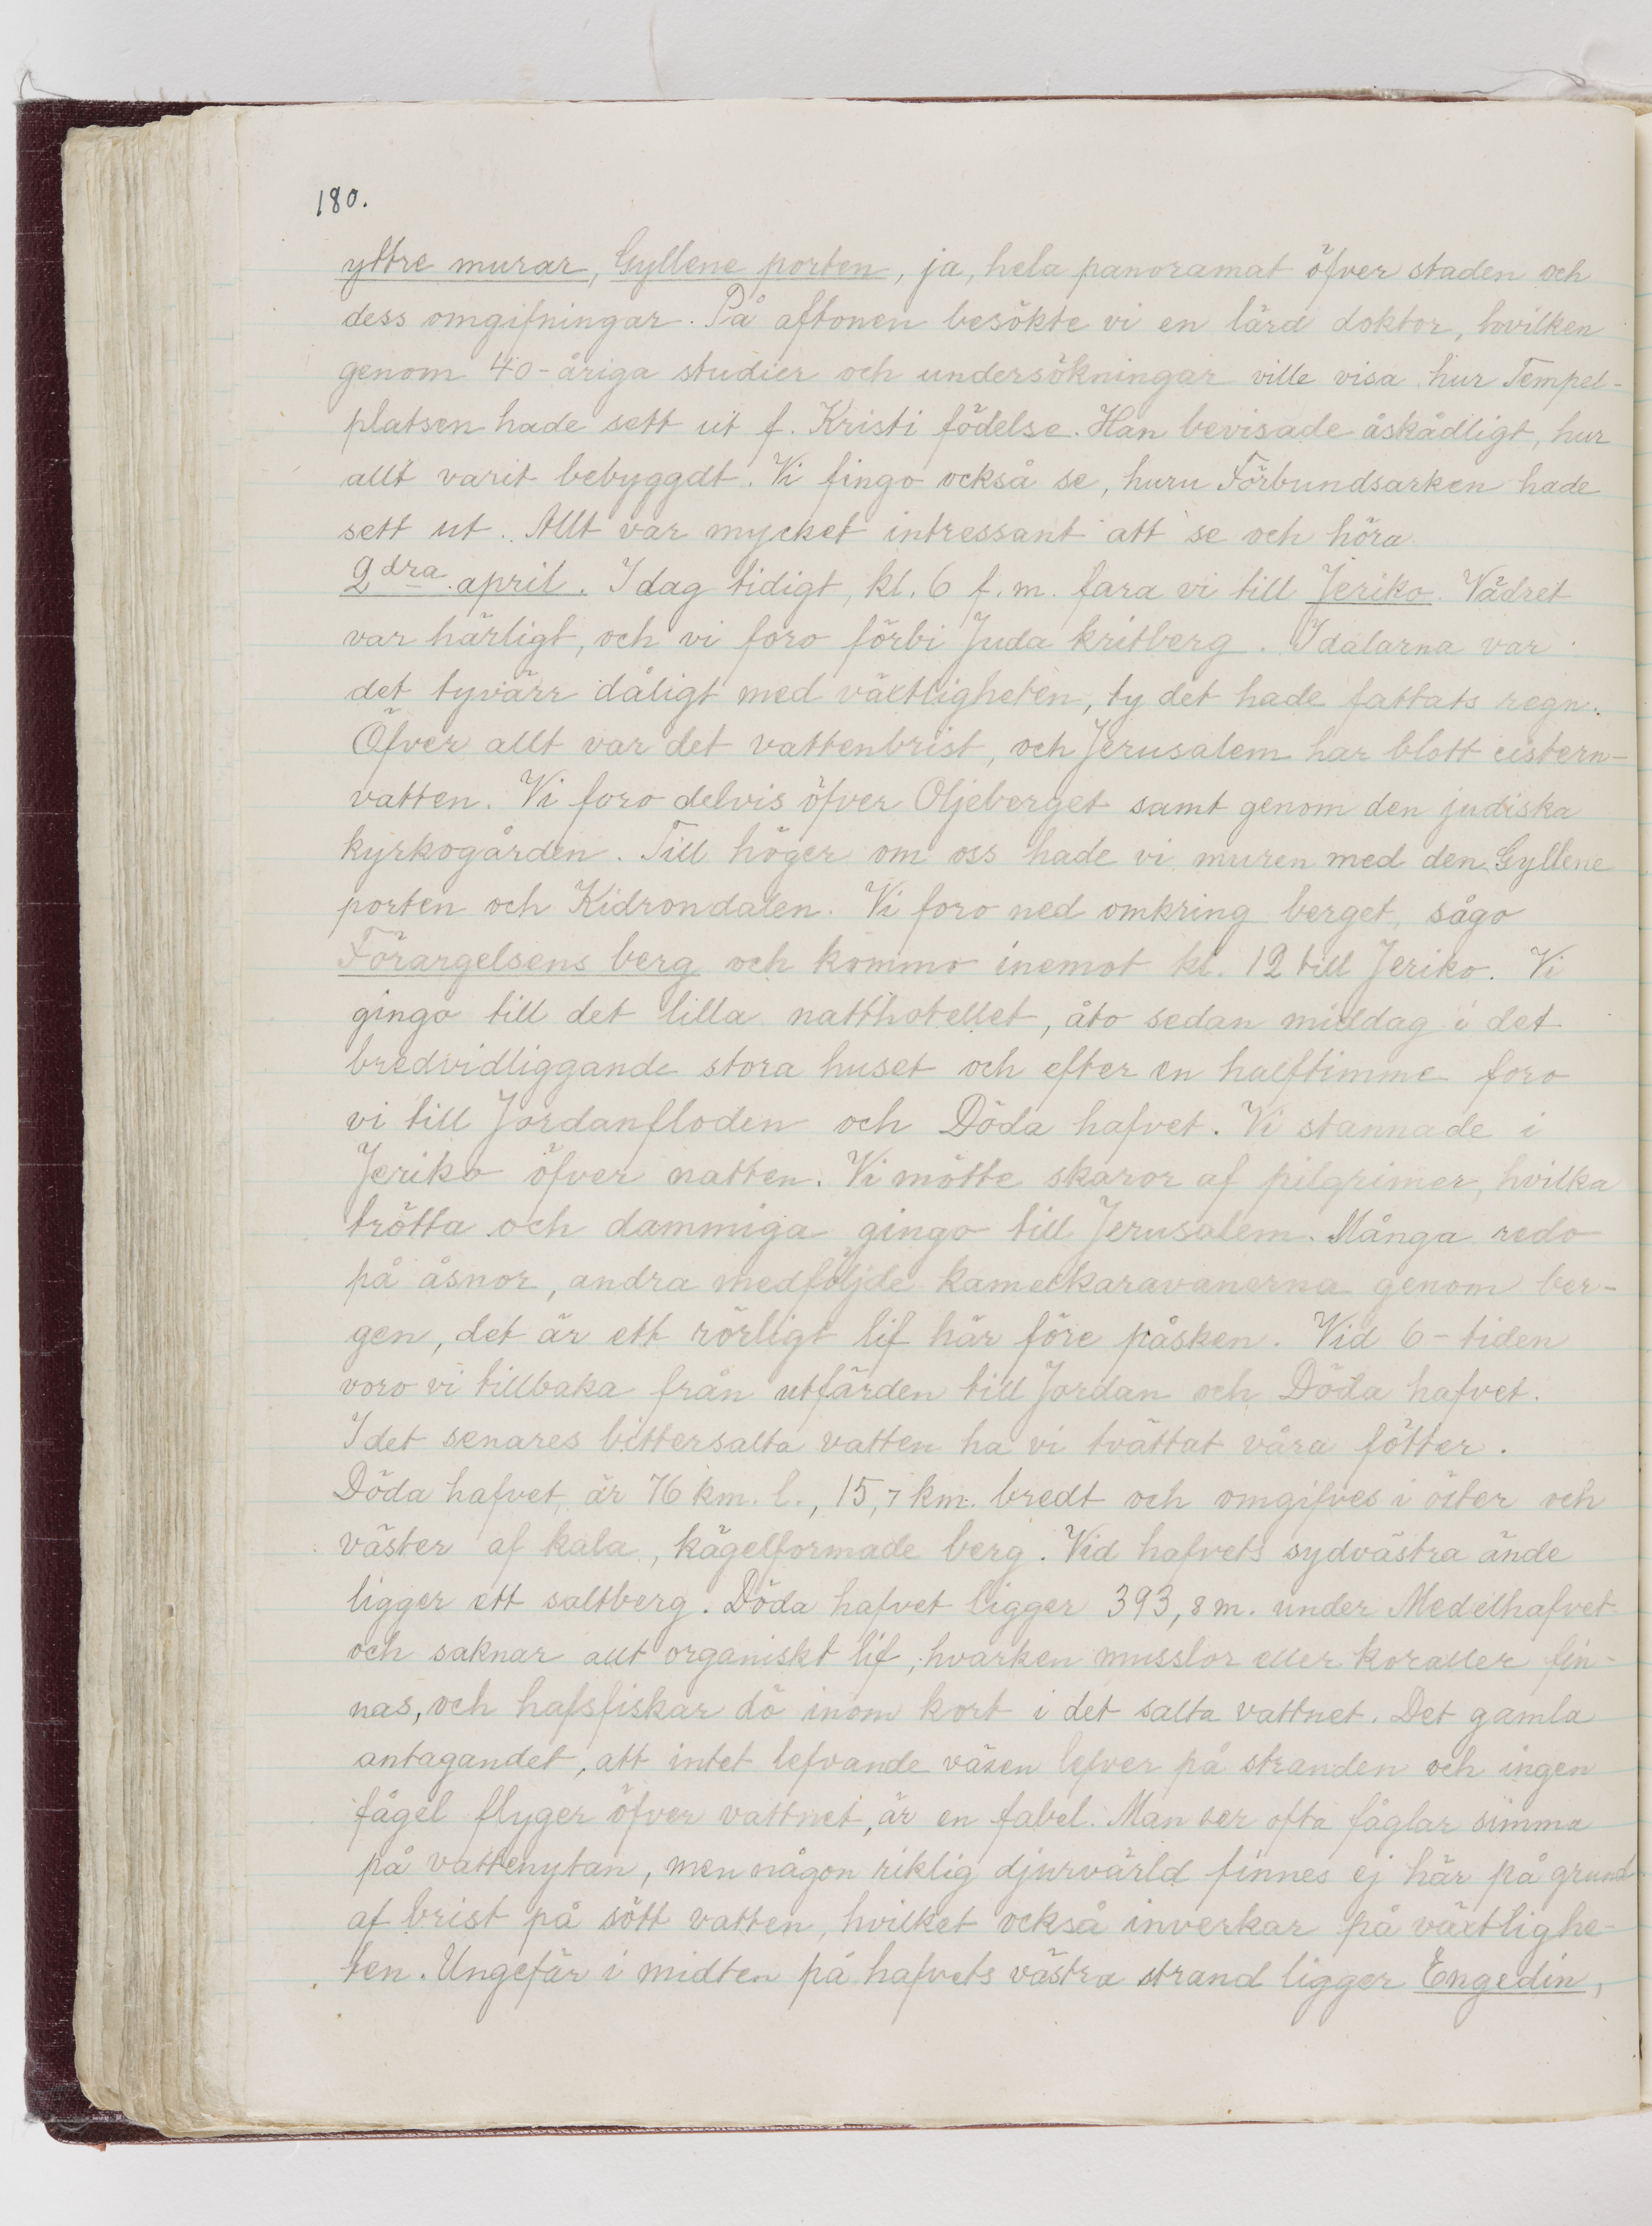 180.
yttre murar, Gyllene porten, ja, hela panoramat öfver staden och
dess omgifningar. På aftonen besökte vi en lärd doktor, hvilken
genom 40-åriga studier och undersökningar ville visa hur Tempel-
platsen hade sett ut f. Kristi födelse. Han bevisade åskådligt, hur
allt varit bebyggdt. Vi fingo också se, huru Förbundsarken hade
sett ut. Allt var mycket intressant att se och höra
2dra april. I dag tidigt, kl. 6 f.m. fara vi till Jeriko. Vädret
var härligt, och vi foro förbi Juda kritberg. I dalarna var
det tyvärr dåligt med växtligheten, ty det hade fattats regn.
Öfver allt var det vattenbrist, och Jerusalem har blott cistern-
vatten. Vi foro delvis öfver Oljeberget samt genom den judiska
kyrkogården. Till höger om oss hade vi muren med den Gyllene
porten och Kidrondalen. Vi foro ned omkring berget, sågo
Förargelsens berg och kommo inemot kl. 12 till Jeriko. Vi
gingo till det lilla natthotellet, åto sedan middag i det
bredvidliggande stora huset och efter en halftimme foro
vi till Jordanfloden och Döda hafvet. Vi stannade i
Jeriko öfver natten. Vi mötte skaror af pilgrimer, hvilka
trötta och dammiga gingo till Jerusalem. Många redo
på åsnor, andra medföljde kamelkaravanerna genom ber-
gen, det är ett rörligt lif här före påsken. Vid 6-tiden
voro vi tillbaka från utfärden till Jordan och Döda hafvet.
I det senares bittersalta vatten ha vi tvättat våra fötter.
Döda hafvet är 76 km. l., 15,7 km. bredt och omgifves i öster och
väster af kala, kägelformade berg. Vid hafvets sydvästra ände
ligger ett saltberg. Döda hafvet ligger 393,8 m. under Medelhafvet
och saknar allt organiskt lif, hvarken musslor eller koraller fin-
nas, och hafsfiskar dö inom kort i det salta vattnet. Det gamla
antagandet, att intet lefvande väsen lefver på stranden och ingen
fågel flyger öfver vattnet, är en fabel. Man ser ofta fåglar simma
på vattenytan, men någon riklig djurvärld finnes ej här på grund
af brist på sött vatten, hvilket också inverkar på växtlighe-
ten. Ungefär i midten på hafvets västra strand ligger Engedin,